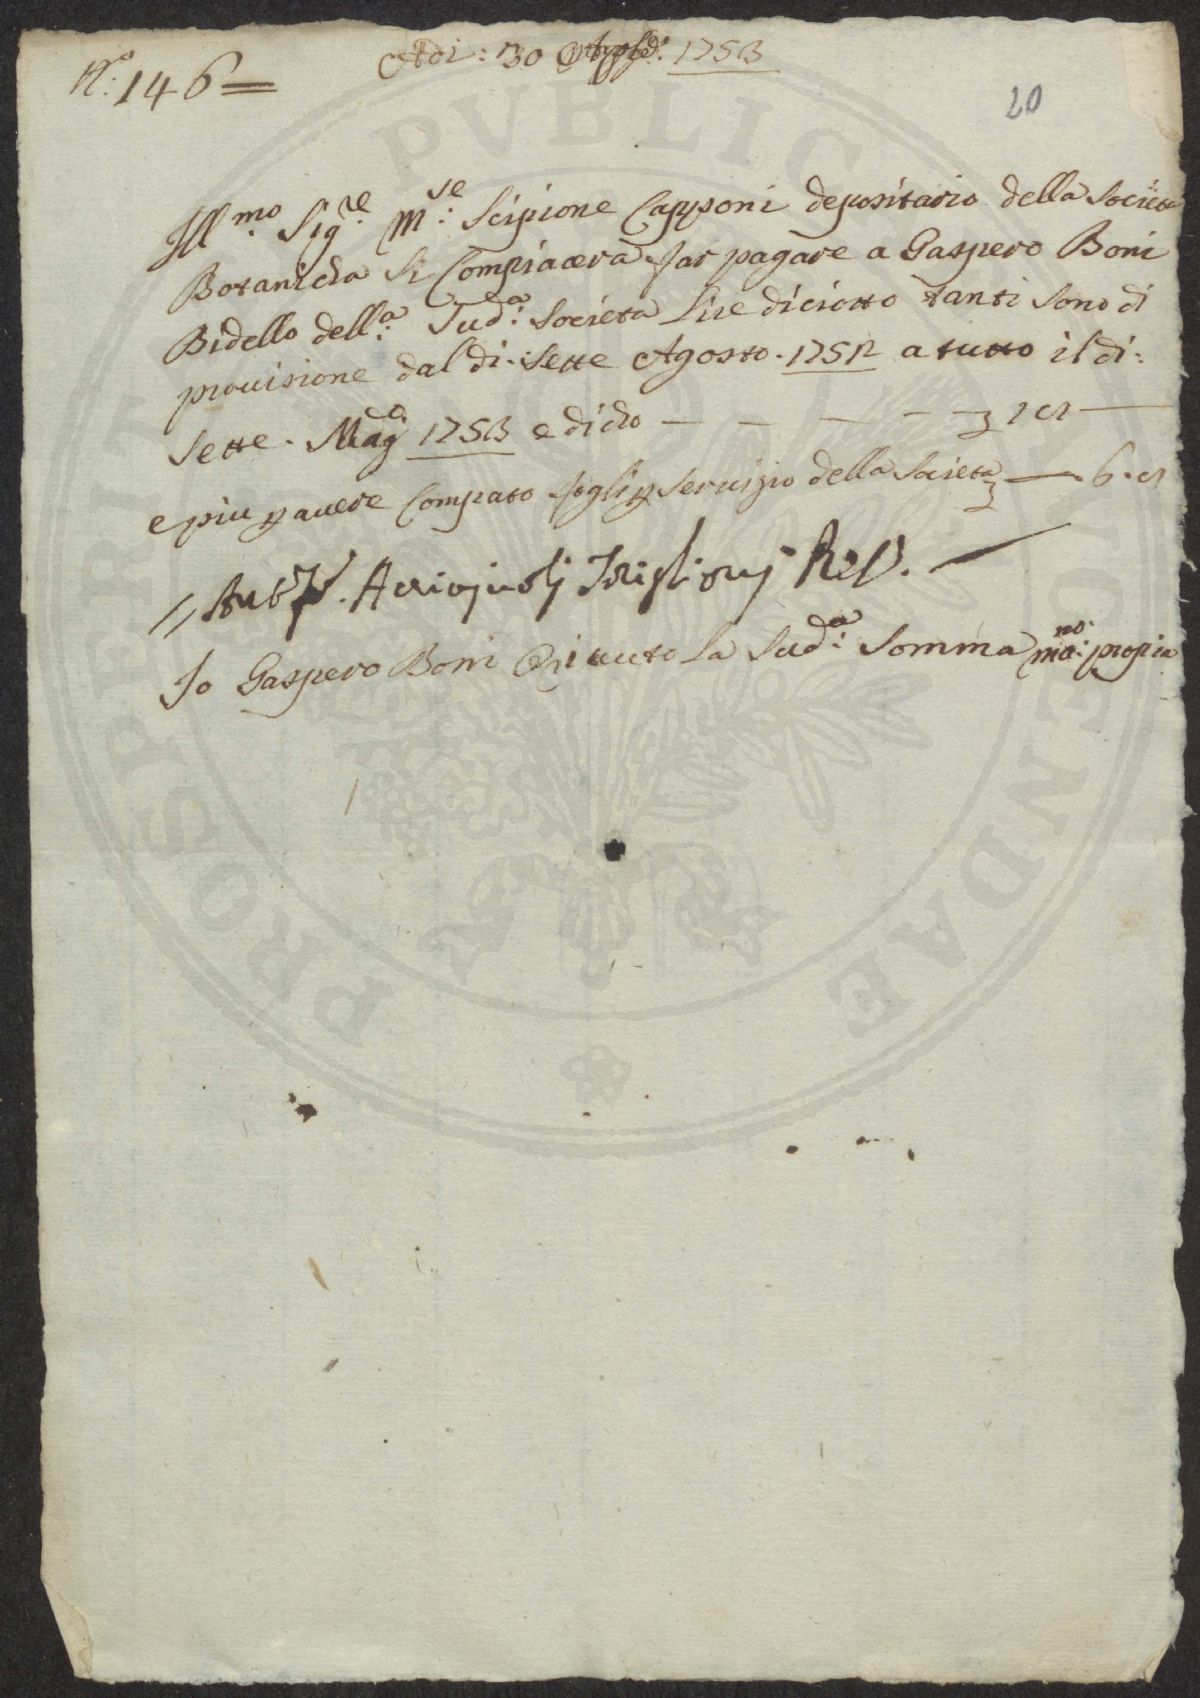 N.o 146=
Adi: 30 1753
20
Ill.mo Sig.re M.se Scipione Capponi depositario della Societa
Botanicha Si Compiacera far pagare a Gaspero Boni
Bidello dell.a Sud.a Societa Lire diciotto tanti Sono di
provisione dal di. Sette Agosto. 1752 a tutto il di:
Sette. Mag.o 1753 e dicho — — — — — —
e piu p avere Comprato fogli p Servizio della Societa —
Acciajuoli
Io Gaspero Boni Riceuto La Sud.a Somma mano propia
PROSPERITATI PVBLICAE AVGENDAE